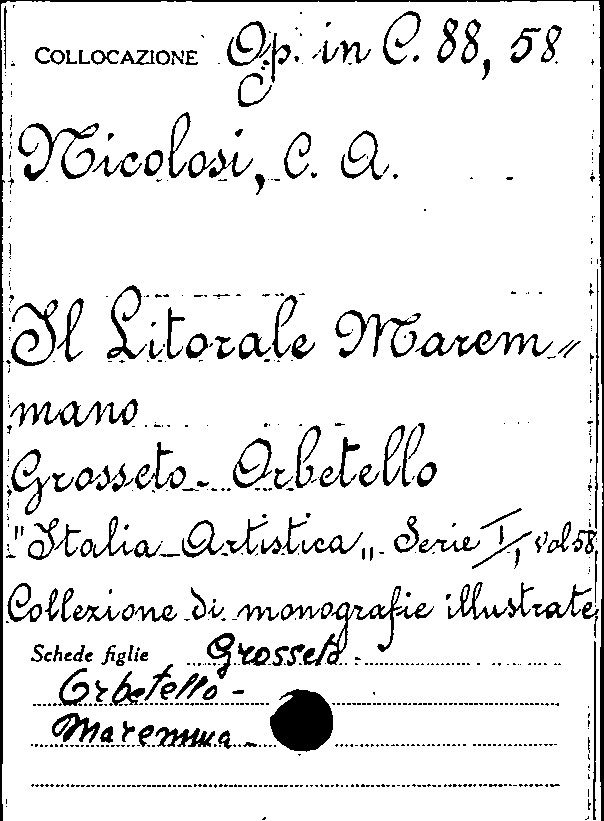 COLLOCAZIONE Op. in C. 88, 58
Nicolosi, C. A.
Il Litorale Marem"
mano
Grosseto - Orbetello
"Italia Artistica,, Serie I, vol 58
Collezione di monografie illustrate
Schede figlie Grosseto -
Orbetello -
Maremma -